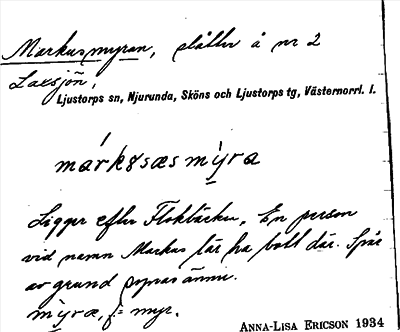 Markusmyran, slåtter å nr 2
Laxsjön,
Ljustorps sn, Njurunda, Sköns och Ljustorps tg, Västernorrl. l.
márkɞsæsmỳra
Ligger efter Flokbäcken. En person
vid namn Markus lär ha bott där. Spår
av grund synas ännu.
mỳra, f = myr.
ANNA-LISA ERICSON 1934